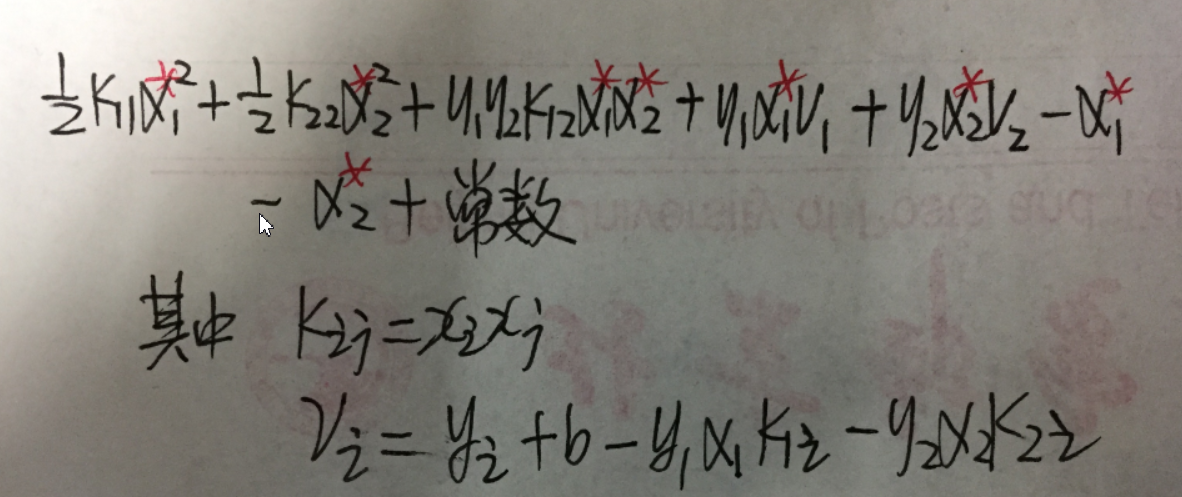 ½K₁₁α₁*² + ½K₂₂α₂*² + y₁y₂K₁₂α₁*α₂* + y₁α₁*V₁ + y₂α₂*V₂ − α₁*
− α₂* + 常数
其中 Kᵢⱼ = xᵢxⱼ
Vᵢ = yᵢ + b − y₁α₁K₁ᵢ − y₂α₂K₂ᵢ